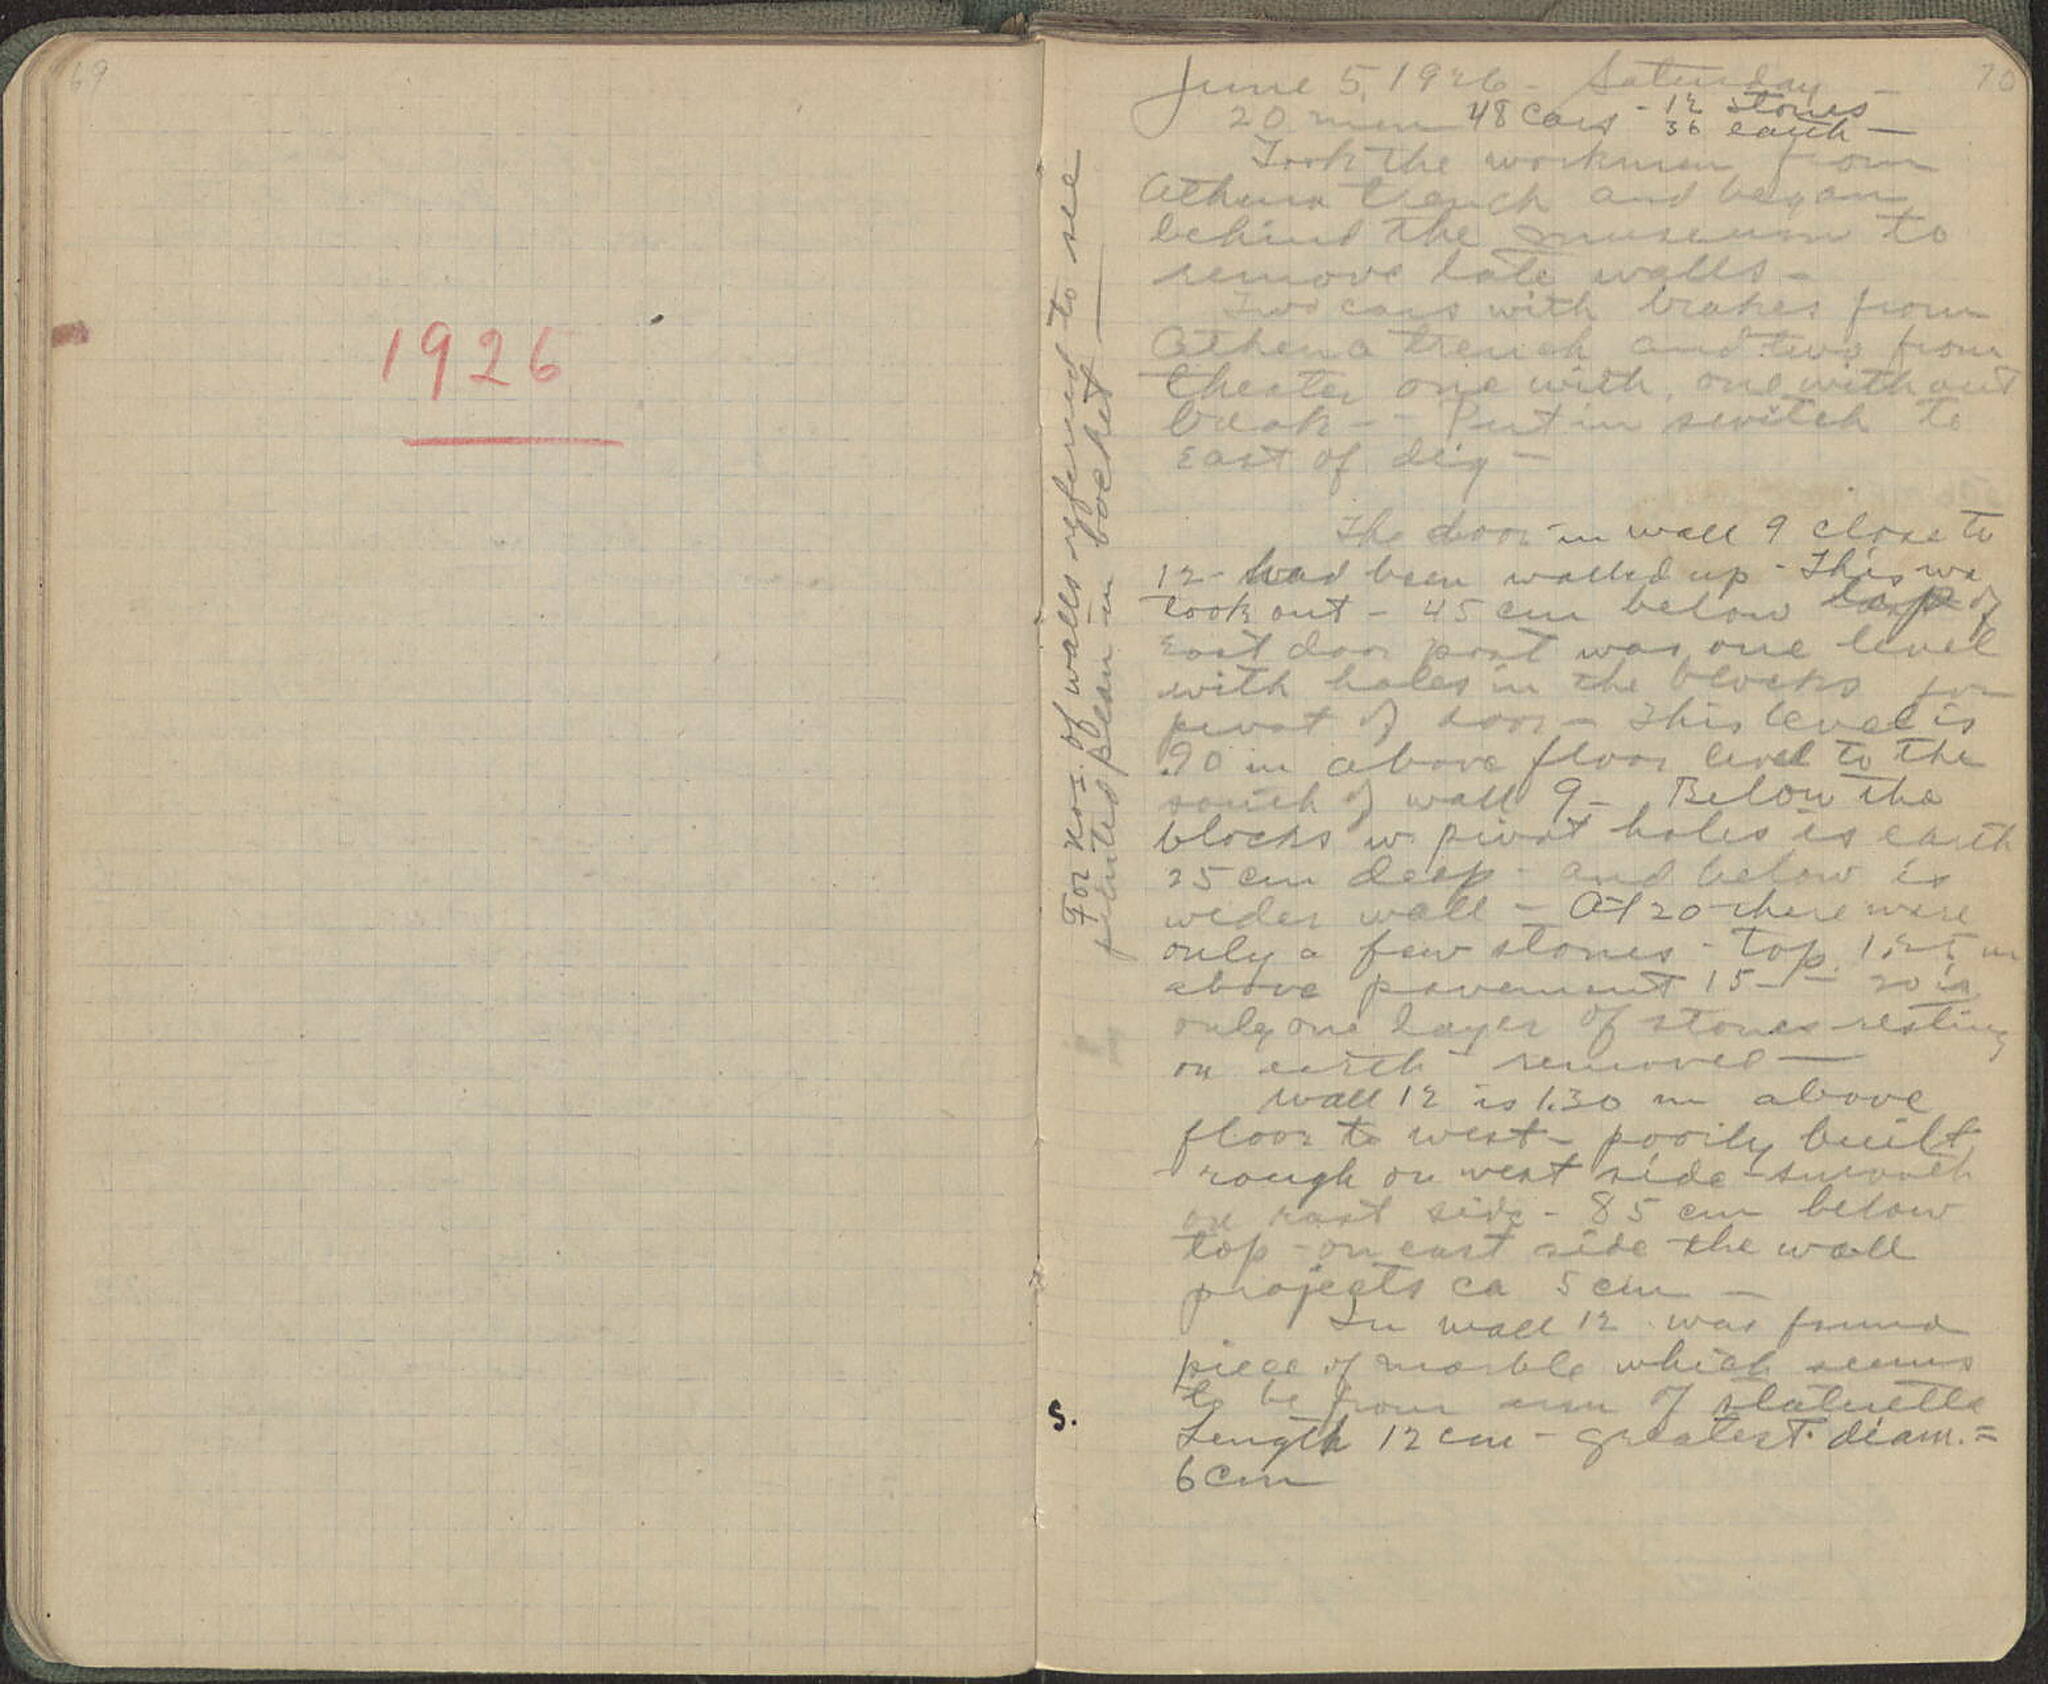 69
1926
70
For nos. of walls referred to see
printed plan in pocket —
June 5, 1926 - Saturday -
20 men 48 cars - 12 stones
36 earth —
Took the workmen from
Athena trench and began
behind the museum to
remove late walls -
Two cars with brakes from
Athena trench and two from
theater one with, one without
break - - Put in switch to
East of dig -
The door in wall 9 close to
12 - had been walled up - This we
took out - 45 cm below top of
east door post was one level
with holes in the blocks for
pivot of door - This level is
.90 m above floor level to the
south of wall 9 - Below the
blocks w. pivot holes is earth
25 cm deep - and below is
wider wall - At 20 there were
only a few stones - top 1.25 m
above pavement 15 - - 20 is
only one layer of stones resting
on earth - removed —
Wall 12 is 1.30 m above
floor to west - poorly built
rough on west side - smooth
on east side - 85 cm below
top - on east side the wall
projects ca 5 cm -
In wall 12 was found
S.
piece of marble which seems
to be from arm of statuette
Length 12 cm - greatest diam. =
6 cm